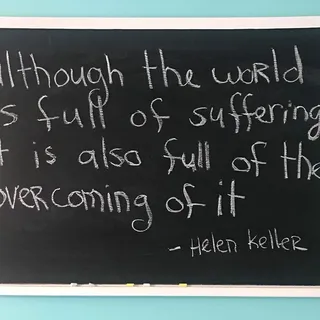 although the world
is full of suffering
it is also full of the
overcoming of it
- Helen Keller